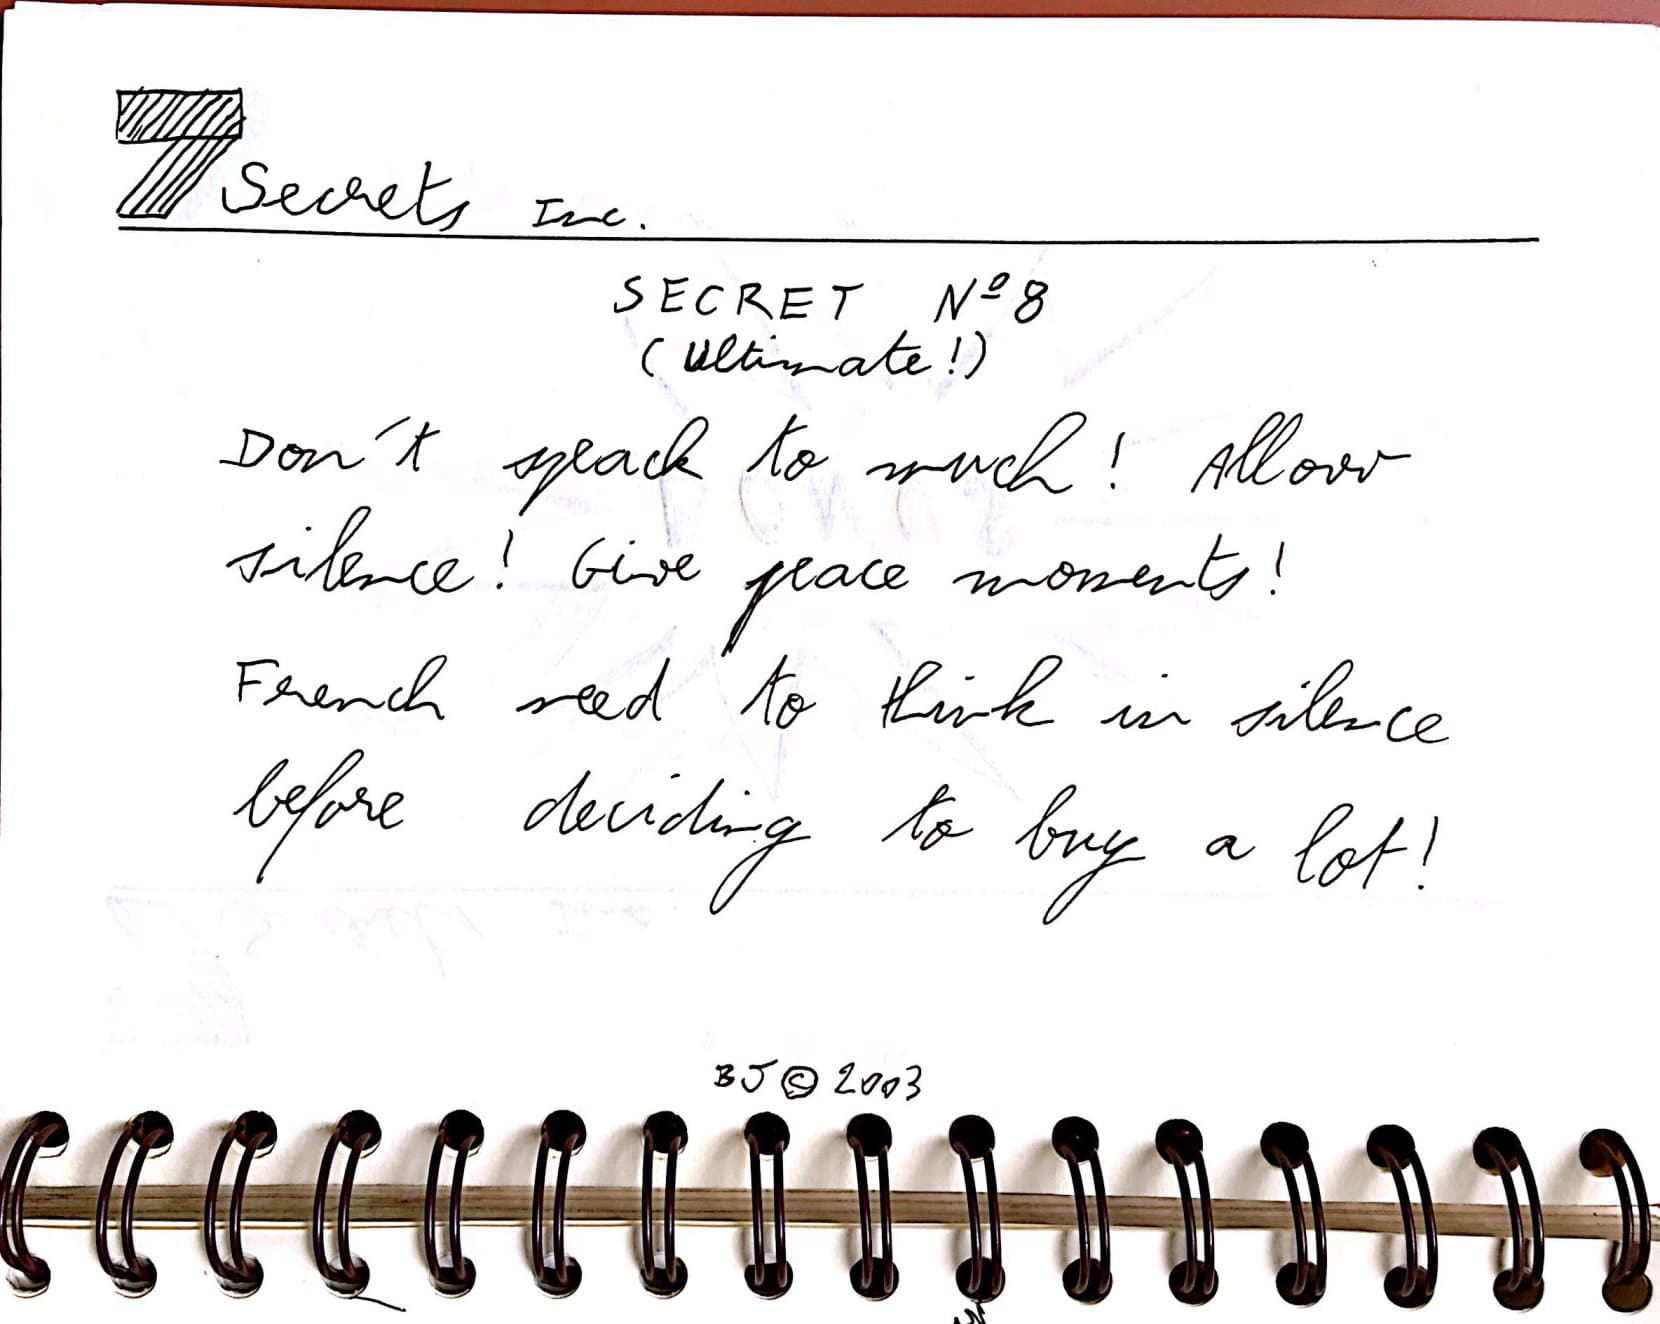 7 Secrets Inc.
SECRET Nº 8
(Ultimate!)
Don't speack to much! Allow
silence! Give peace moments!
French need to think in silence
before deciding to buy a lot!
BJ © 2003